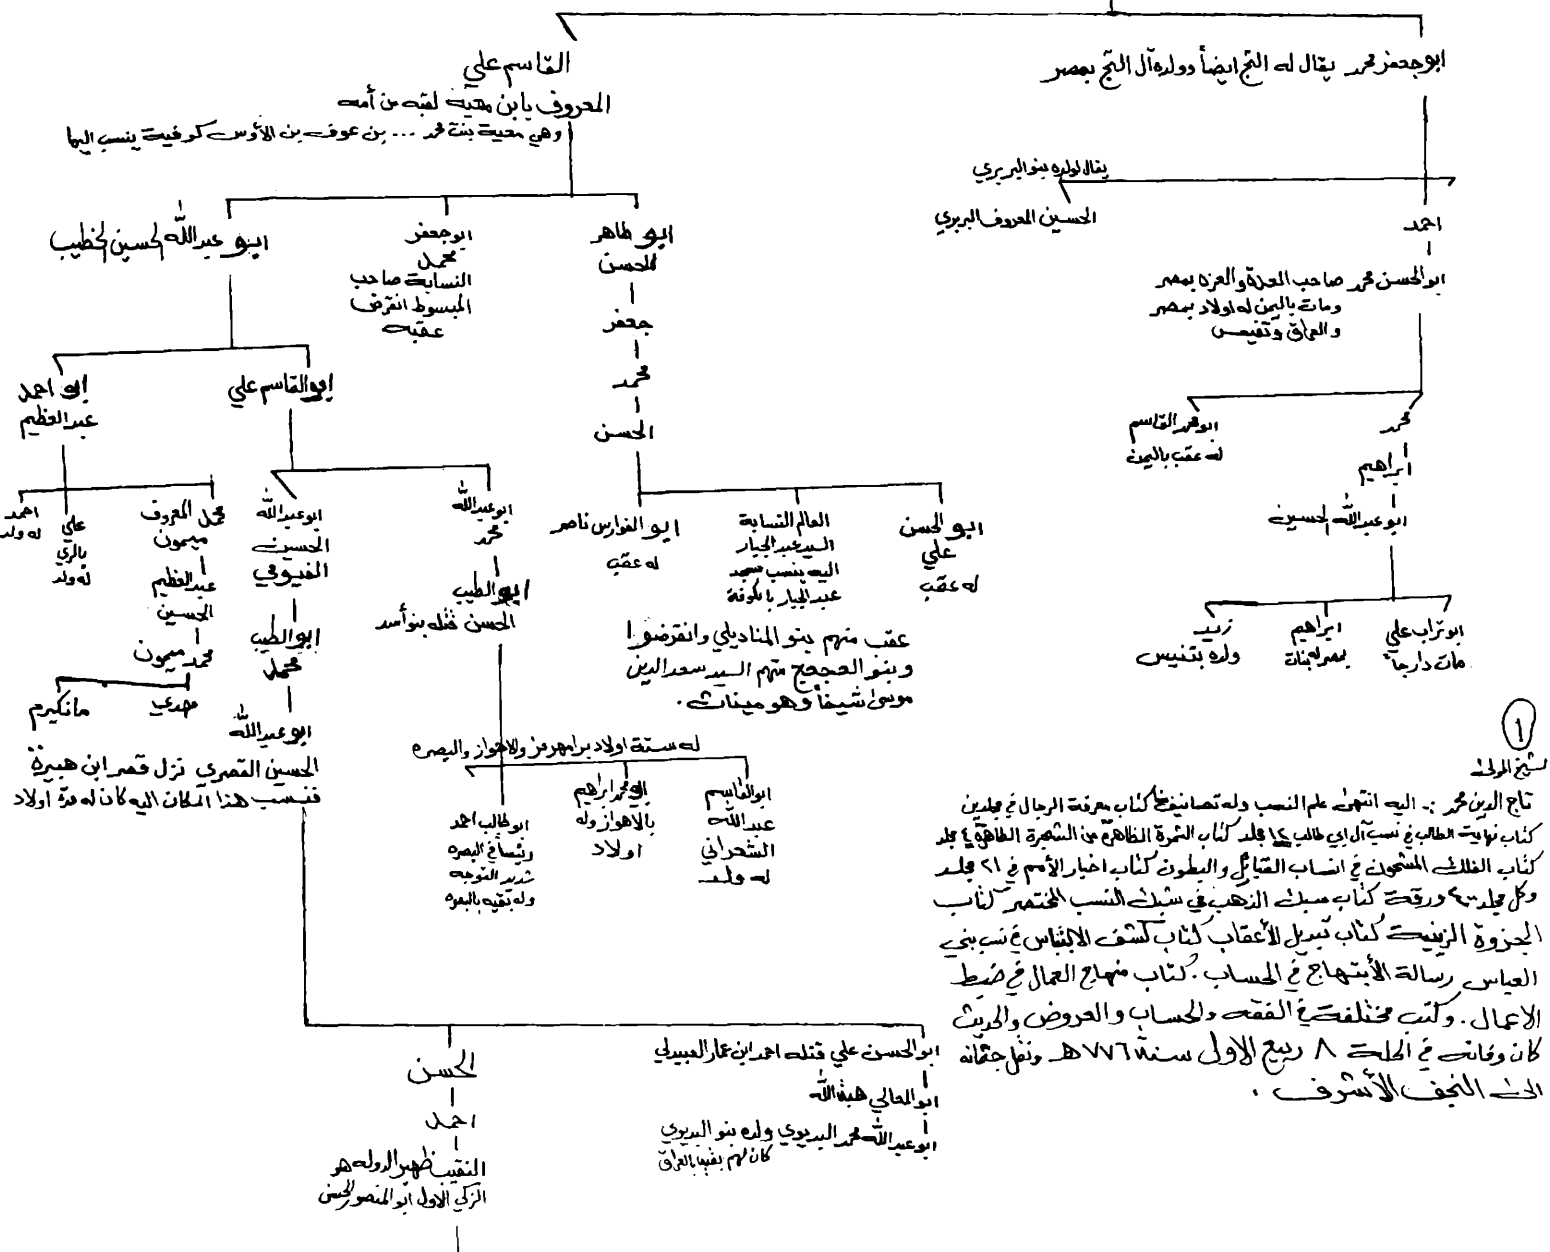 ابو جعفر محمد يقال له التج ايضاً وولده آل التج بمصر
يقال لولده بنو البربري
الحسين المعروف البربري
احمد
ابو الحسن محمد صاحب العدة والعزه بمصر
ومات باليمن له اولاد بمصر
والعراق وتفيس
ابو محمد القاسم
له عقب باليمن
محمد
ابراهيم
ابو عبدالله الحسين
ابو تراب علي
مات دارجاً
ابراهيم
بمصر له بنات
زيد
ولده بتنيس
القاسم علي
المعروف بابن معية لقبه من أمه
وهي معية بنت محمد ... بن عوف بن الأوس كوفية ينسب اليها
ابو طاهر
الحسن
جعفر
محمد
الحسن
ابو الحسن
علي
له عقب
العالم النسابة
السيد عبد الجبار
اليه ينسب مسجد
عبد الجبار بالكوفة
ابو الفوارس ناصر
له عقب
عقب منهم بنو المناديلي وانقرضوا
وبنو العجعج منهم السيد سعد الدين
موسى شيخاً وهو ميناث .
ابو جعفر
محمد
النسابة صاحب
المبسوط انقرض
عقبه
ابو عبدالله الحسين الخطيب
ابو القاسم علي
ابو عبدالله
محمد
ابو الطيب
الحسن قتله بنو أسد
له ستة اولاد برامهرمز والاهواز والبصره
ابو القاسم
عبدالله
الشعراني
له ولد
ابو محمد ابراهيم
بالاهواز وله
اولاد
ابو طالب احمد
رئيساً في البصره
شديد التوجه
وله بقيه بالبصره
ابو عبدالله
الحسين
الفيومي
ابو الطيب
محمد
ابو عبدالله
الحسين القصري نزل قصر ابن هبيرة
فنسب هذا المكان اليه كان له عدة اولاد
ابو احمد
عبد العظيم
محمد المعروف
ميمون
عبد العظيم
الحسين
محمد ميمون
مهدي
مانكيرم
علي
بالري
له ولد
احمد
له ولد
ابو الحسن علي قتله احمد ابن عمار العبيدلي
ابو المعالي هبة الله
ابو عبدالله محمد البديوي ولده بنو البديوي
كان لهم بقية بالعراق
الحسن
احمد
النقيب ظهير الدوله هو
الزكي الاول ابو المنصور الحسن
١
تاج الدين محمد :. اليه انتهى علم النسب وله تصانيف كتاب معرفة الرجال في مجلدين
كتاب نهاية الطالب في نسب آل ابي طالب ١٢ مجلد كتاب الثمرة الظاهرة من الشجرة الطاهرة ٤ مجلد
كتاب الفلك المشحون في انساب القبائل والبطون كتاب اخبار الأمم في ٢١ مجلد
وكل مجلد ٤٠٠ ورقة كتاب سبك الذهب في شبك النسب المختصر كتاب
الجزوة الزينية كتاب تبديل الأعقاب كتاب كشف الالتباس في نسب بني
العباس رسالة الأبتهاج في الحساب . كتاب منهاج العمال في ضبط
الاعمال . وكتب مختلفة في الفقه والحساب والعروض والحديث
كان وفاته في الحلة ٨ ربيع الاول سنة ٧٧٦ هـ ونقل جثمانه
الى النجف الأشرف .